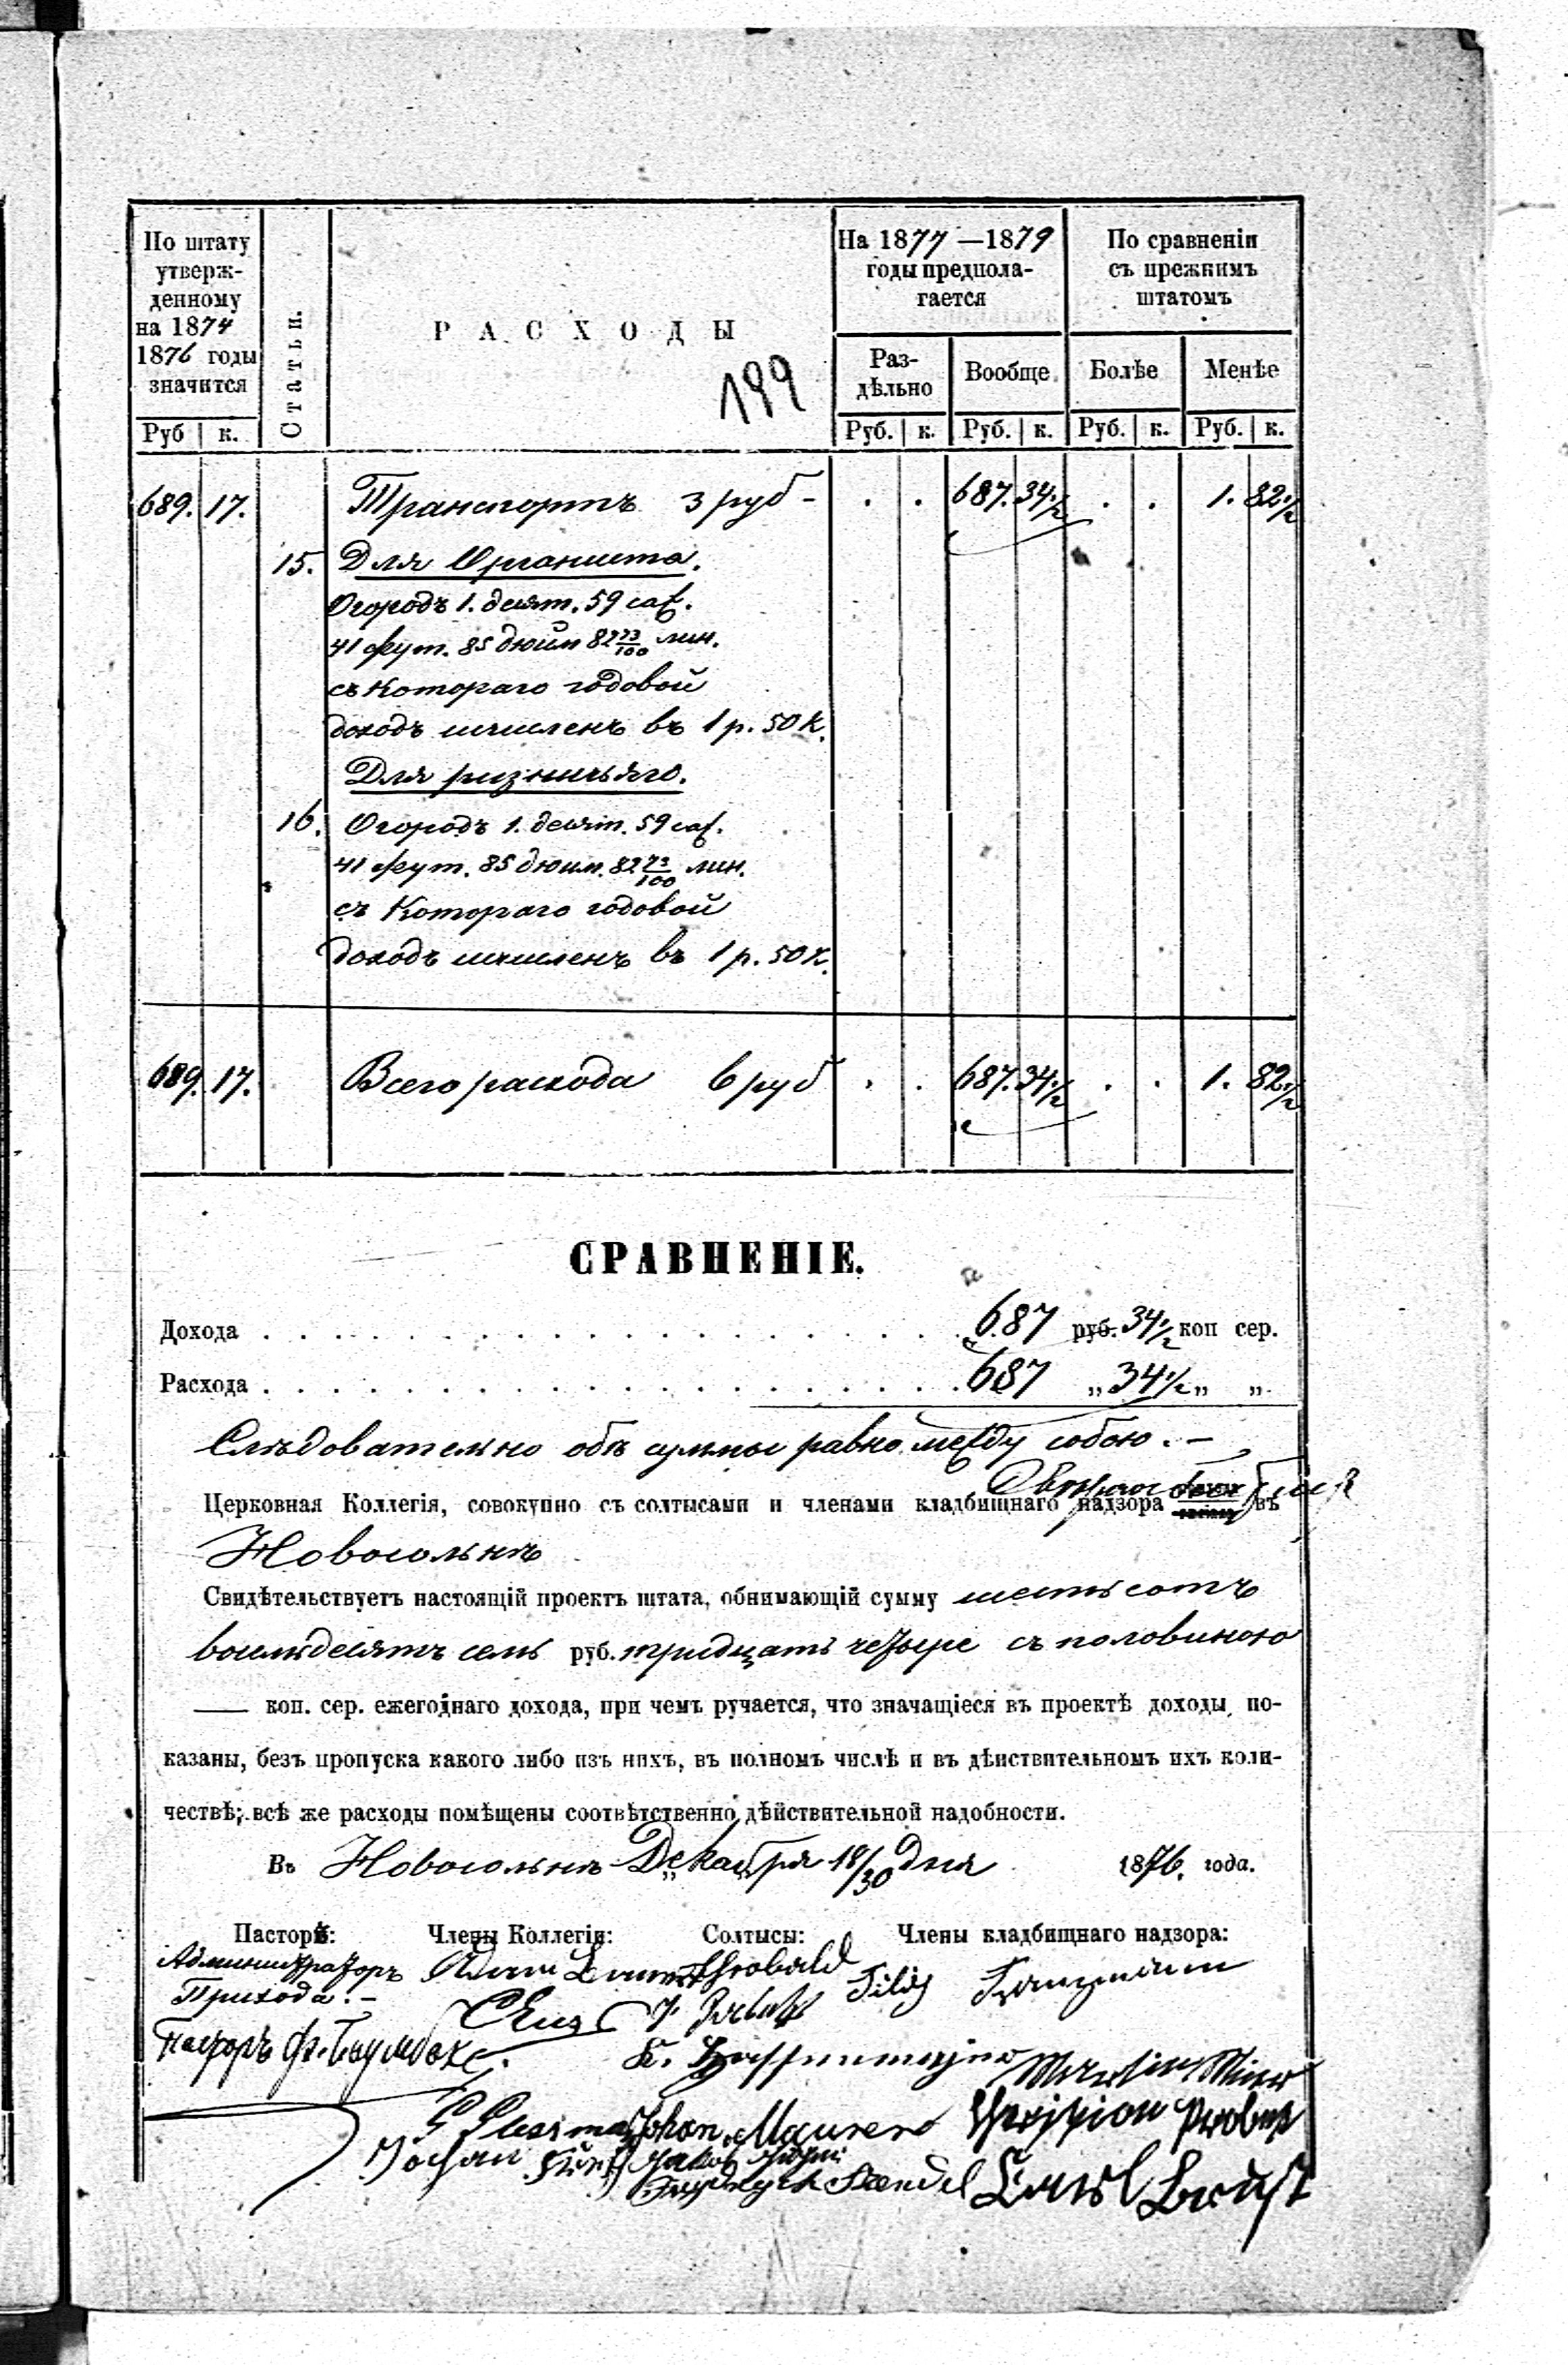 По штату утверж-денному на 1874 1876 годы значится
Статьи.
РАСХОДЫ
199
На 1877 —1879 годы предпола-гается
По сравненіи съ прежнимъ штатомъ
Раз-дѣльно
Вообще
Болѣе
Менѣе
Руб к. Руб. к. Руб. к. Руб. к. Руб. к.
689. 17. Транспортъ 3 руб - . . 687. 34½ . . 1. 82½
15. Для Органиста.
Огородъ 1. десят. 59 саж.
41 фут. 85 дюйм 82 73/100 лин.
съ котораго годовой
доходъ исчисленъ въ 1 р. 50 к.
Для ризничьяго.
16. Огородъ 1. десят. 59 саж.
41 фут. 85 дюим. 82 73/100 лин.
съ котораго годовой
доходъ исчисленъ въ 1 р. 50 к.
689. 17. Всего расхода 6 руб . . 687. 34½ . . 1. 82½
СРАВНЕНІЕ.
Дохода . . . . 687 руб. 34½ коп сер.
Расхода . . . . 687 „ 34½ „ „
Слѣдовательно обѣ суммы равно между собою. -
Церковная Коллегія, совокупно съ солтысами и членами кладбищнаго надзора въ
Новосольнѣ
Свидѣтельствуетъ настоящій проектъ штата, обнимающій сумму шестьсотъ
восемьдесятъ семь руб. тридцать четыре съ половиною
— коп. сер. ежегоднаго дохода, при чемъ ручается, что значащіеся въ проектѣ доходы по-
казаны, безъ пропуска какого либо изъ нихъ, въ полномъ числѣ и въ дѣйствительномъ ихъ коли-
чествѣ; всѣ же расходы помѣщены соотвѣтственно дѣйствительной надобности.
Въ Новосольнѣ Декабря 18/30 дня 1876. года.
Пасторъ: Члены Коллегіи: Солтысы: Члены кладбищнаго надзора:
Администраторъ
Прихода. -
Пасторъ
Johan Maurer
Carl